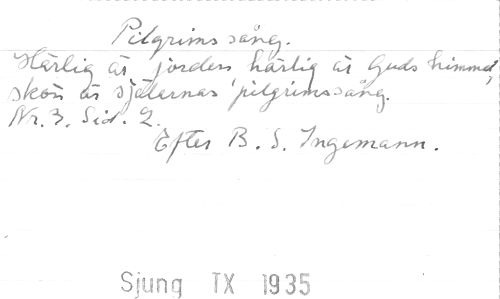 Pilgrimssång.
Härlig är jorden härlig är Guds himmel,
skön är själarnas pilgrimssång.
Nr. 3. Sid. 2.
Efter B. S. Ingemann.
Sjung IX 1935